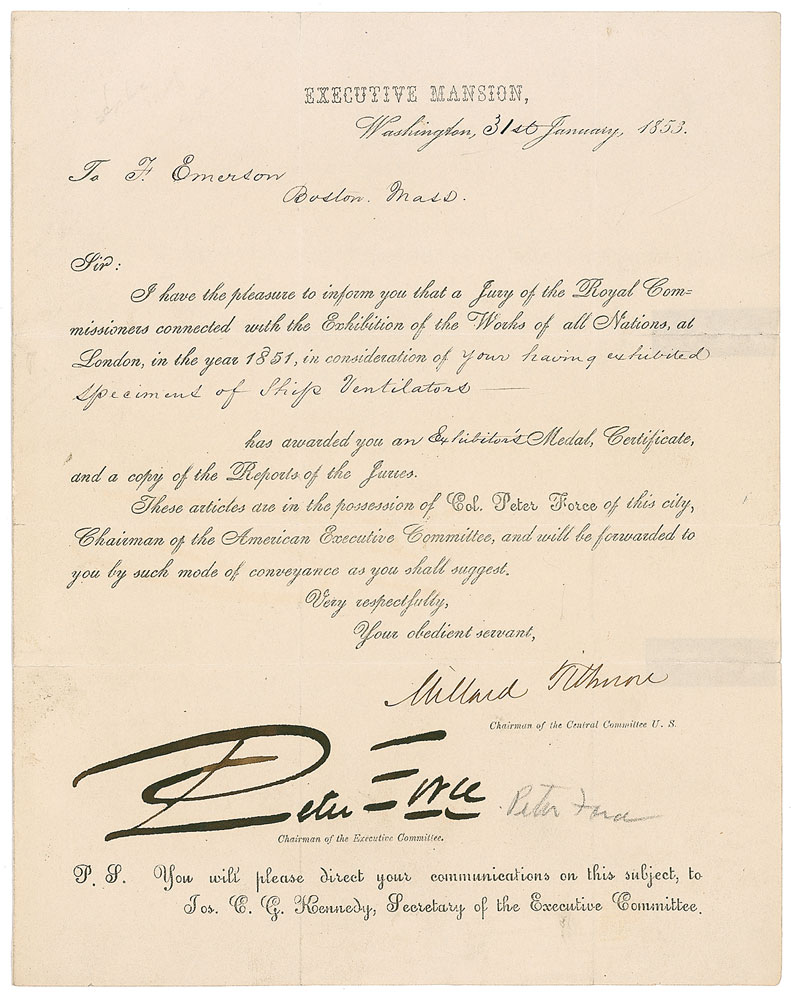 EXECUTIVE MANSION,
Washington, 31st January, 1853.
To F. Emerson
Boston. Mass.
Sir:
I have the pleasure to inform you that a Jury of the Royal Com=
missioners connected with the Exhibition of the Works of all Nations, at
London, in the year 1851, in consideration of your having exhibited
speciments of Ship Ventilators —
has awarded you an Exhibitor's Medal, Certificate,
and a copy of the Reports of the Juries.
These articles are in the possession of Col. Peter Force of this city,
Chairman of the American Executive Committee, and will be forwarded to
you by such mode of conveyance as you shall suggest.
Very respectfully,
Your obedient servant,
Millard Fillmore
Chairman of the Central Committee U. S.
Peter Force
Peter Ford
Chairman of the Executive Committee.
P. S. You will please direct your communications on this subject, to
Jos. C. G. Kennedy, Secretary of the Executive Committee.